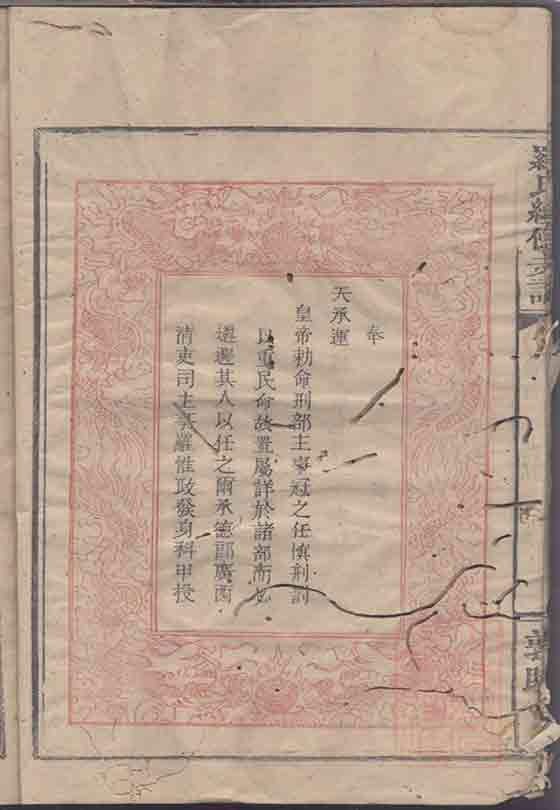 奉
天承運
皇帝勅命刑部主事冠之任慎刑罰
以重民命故置屬詳於諸部而必
選其人以任之爾承德郎廣西
清吏司主事羅惟政發身科甲授
羅氏經修支譜